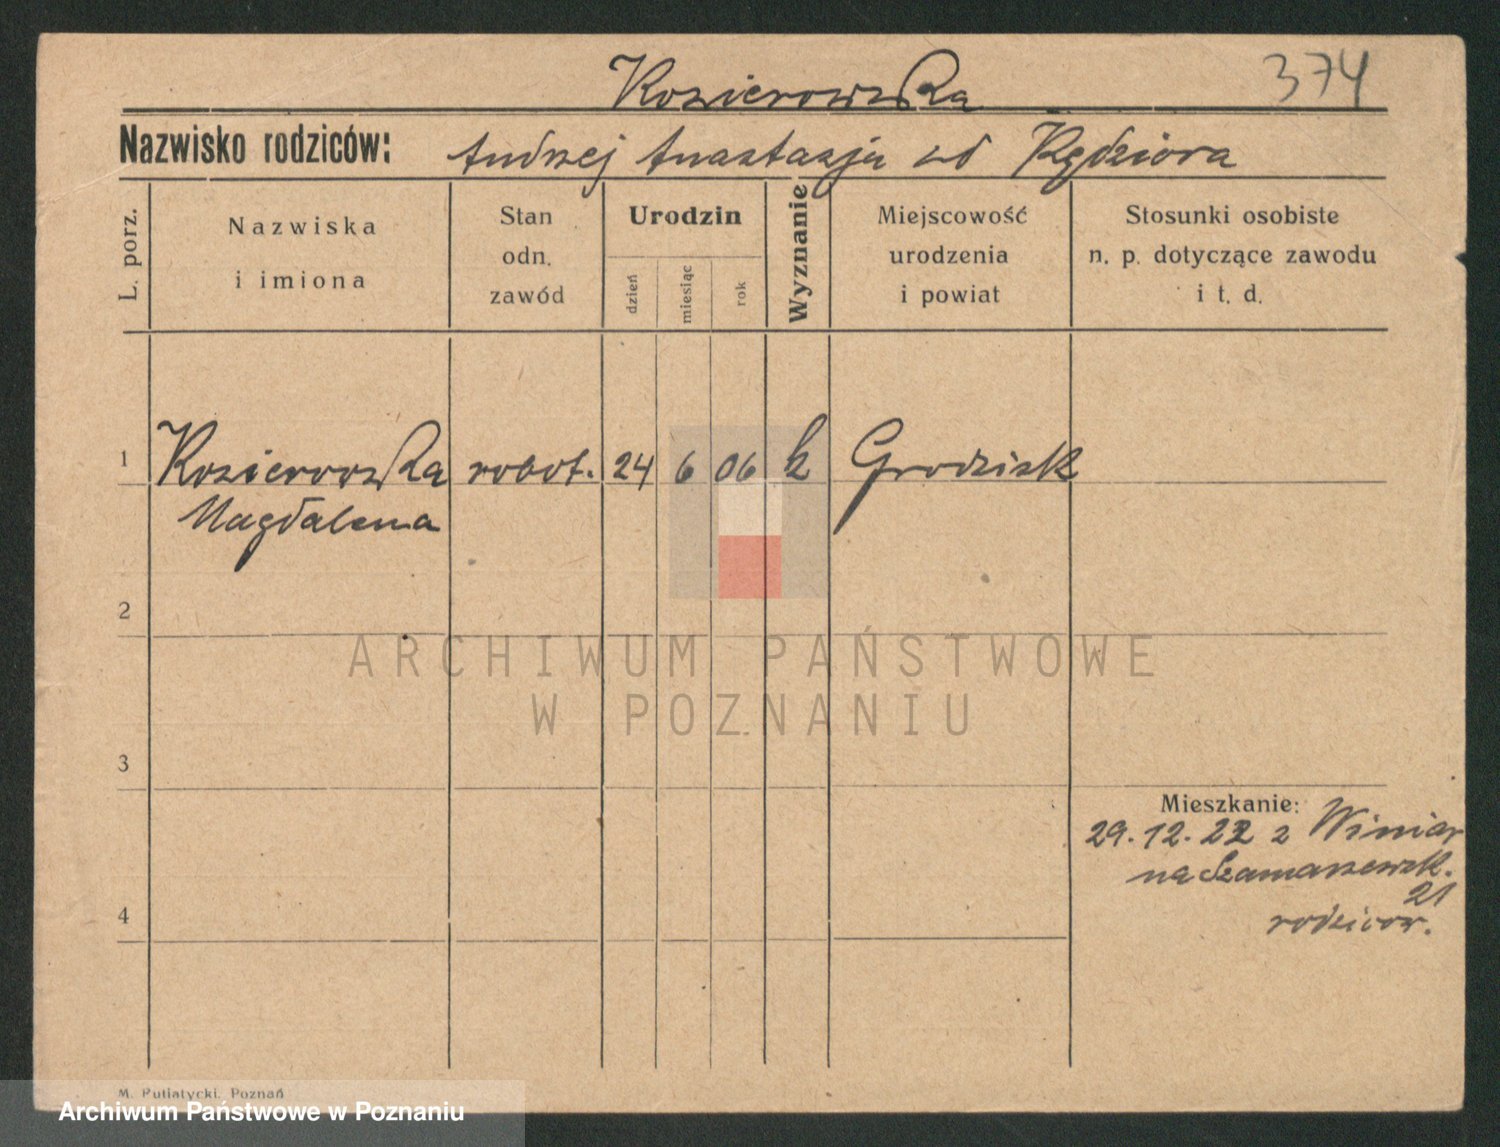 Kozierowska 374
Nazwisko rodziców: Andrzej Anastazja zd Kędziora
L. porz.
Nazwiska i imiona
Stan odn. zawód
Urodzin
dzień
miesiąc
rok
Wyznanie
Miejscowość urodzenia i powiat
Stosunki osobiste n. p. dotyczące zawodu i t. d.
1 Kozierowska robot. 24 6 06 k Grodzisk
Magdalena
2
ARCHIWUM PAŃSTWOWE
W POZNANIU
3
Mieszkanie:
29.12.22 z Winiar
na Szamarzewsk.
21
rodziców.
4
M. Putiatycki, Poznań
Archiwum Państwowe w Poznaniu